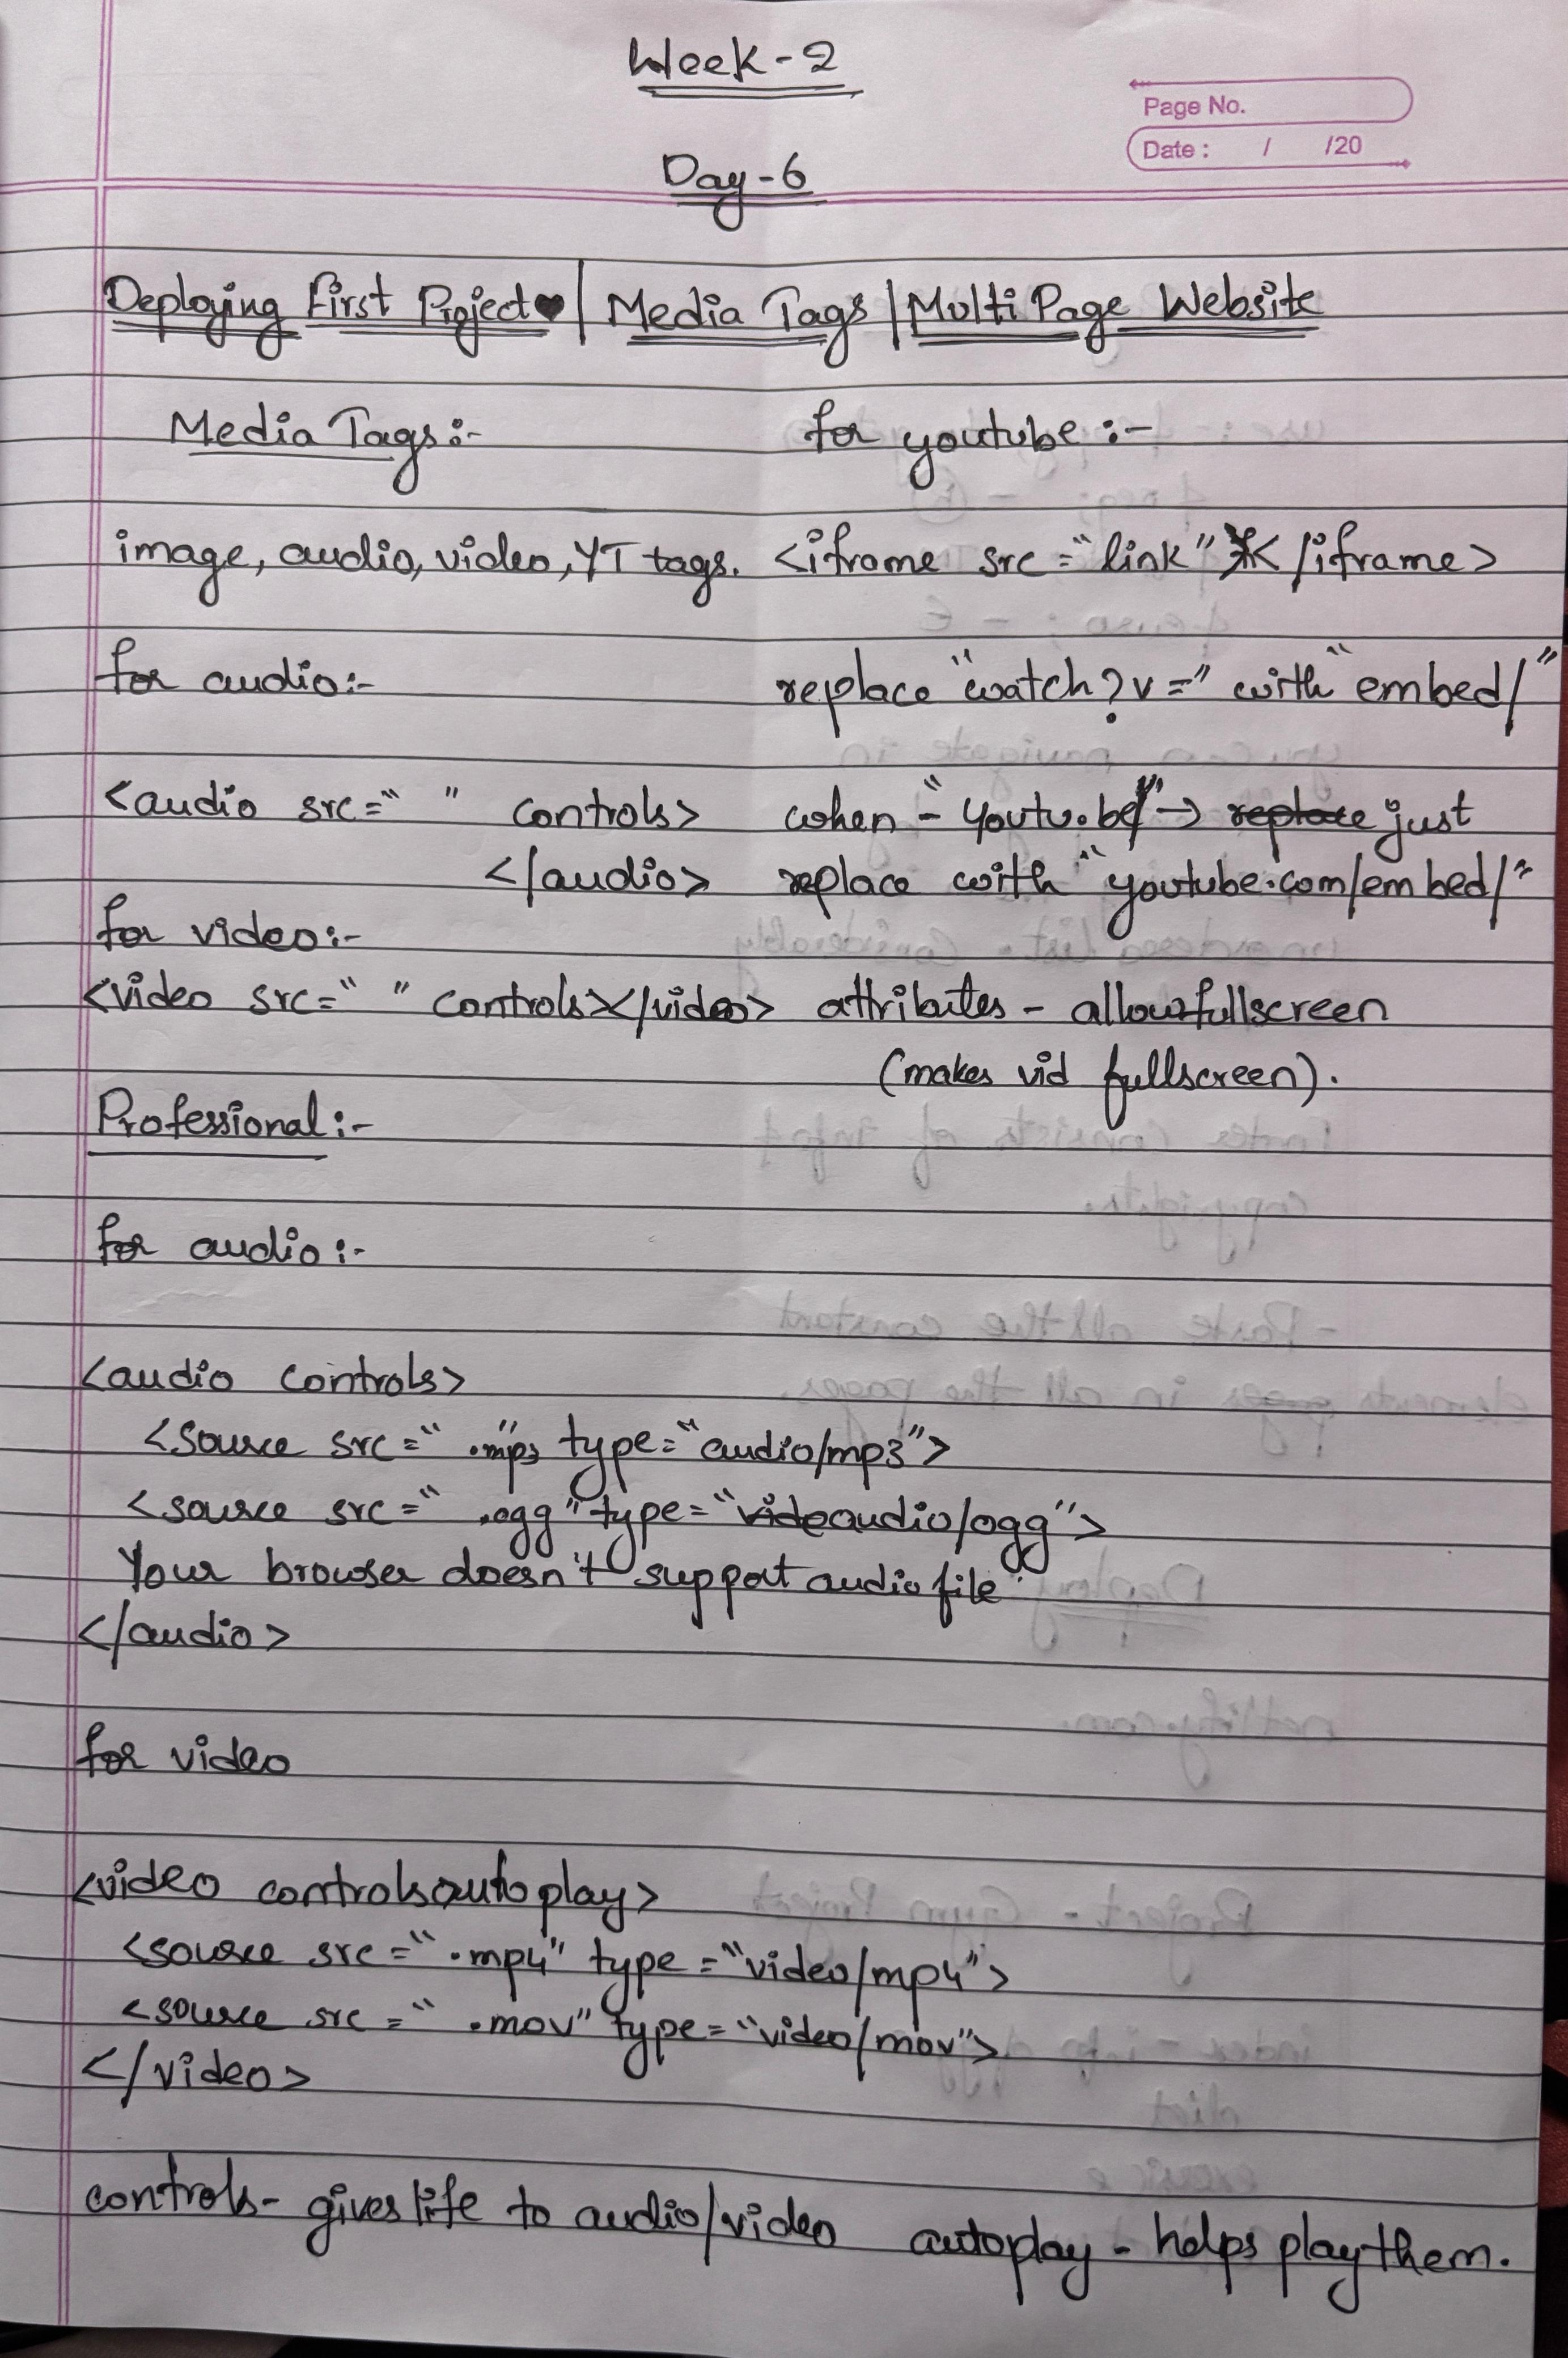 Week-2
Page No.
Date : / /20
Day-6
Deploying First Project♥ | Media Tags | Multi Page Website
Media Tags:-
image, audio, video, YT tags.
for audio:-
<audio src=" " controls>
</audio>
for video:-
<video src=" " controls></video>
for youtube:-
<iframe src="link"></iframe>
replace "watch?v=" with "embed/"
when - "youtu.be/" → replace just
replace with "youtube.com/embed/"
attributes - allowfullscreen
(makes vid fullscreen).
Professional:-
for audio:-
<audio controls>
<source src=" .mp3" type="audio/mp3">
<source src=" .ogg" type="videaudio/ogg">
Your browser doesn't support audio file
</audio>
for video
<video controls autoplay>
<source src=" .mp4" type="video/mp4">
<source src=" .mov" type="video/mov">
</video>
controls- gives life to audio/video autoplay - helps play them.